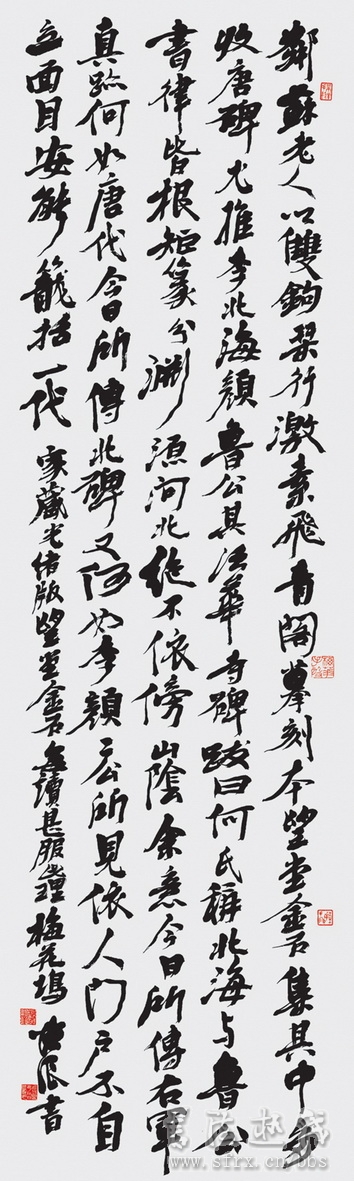 鄰蘇老人以雙鉤行激素飛青閣摹刻本望堂金石集其中多
收唐碑尤推李北海顏魯公其法華寺碑跋曰何氏稱北海与魯公
書律皆根矩篆分淵源河北絕不依傍山陰余意今日所傳右軍
真跡何如唐代今日所傳北碑又何如李顏二公所見依人門戶不自
立面目安能籠括一代
家藏光緒版望堂金石每讀甚服此理梅花塢書
www.sfrx.cn/bbs